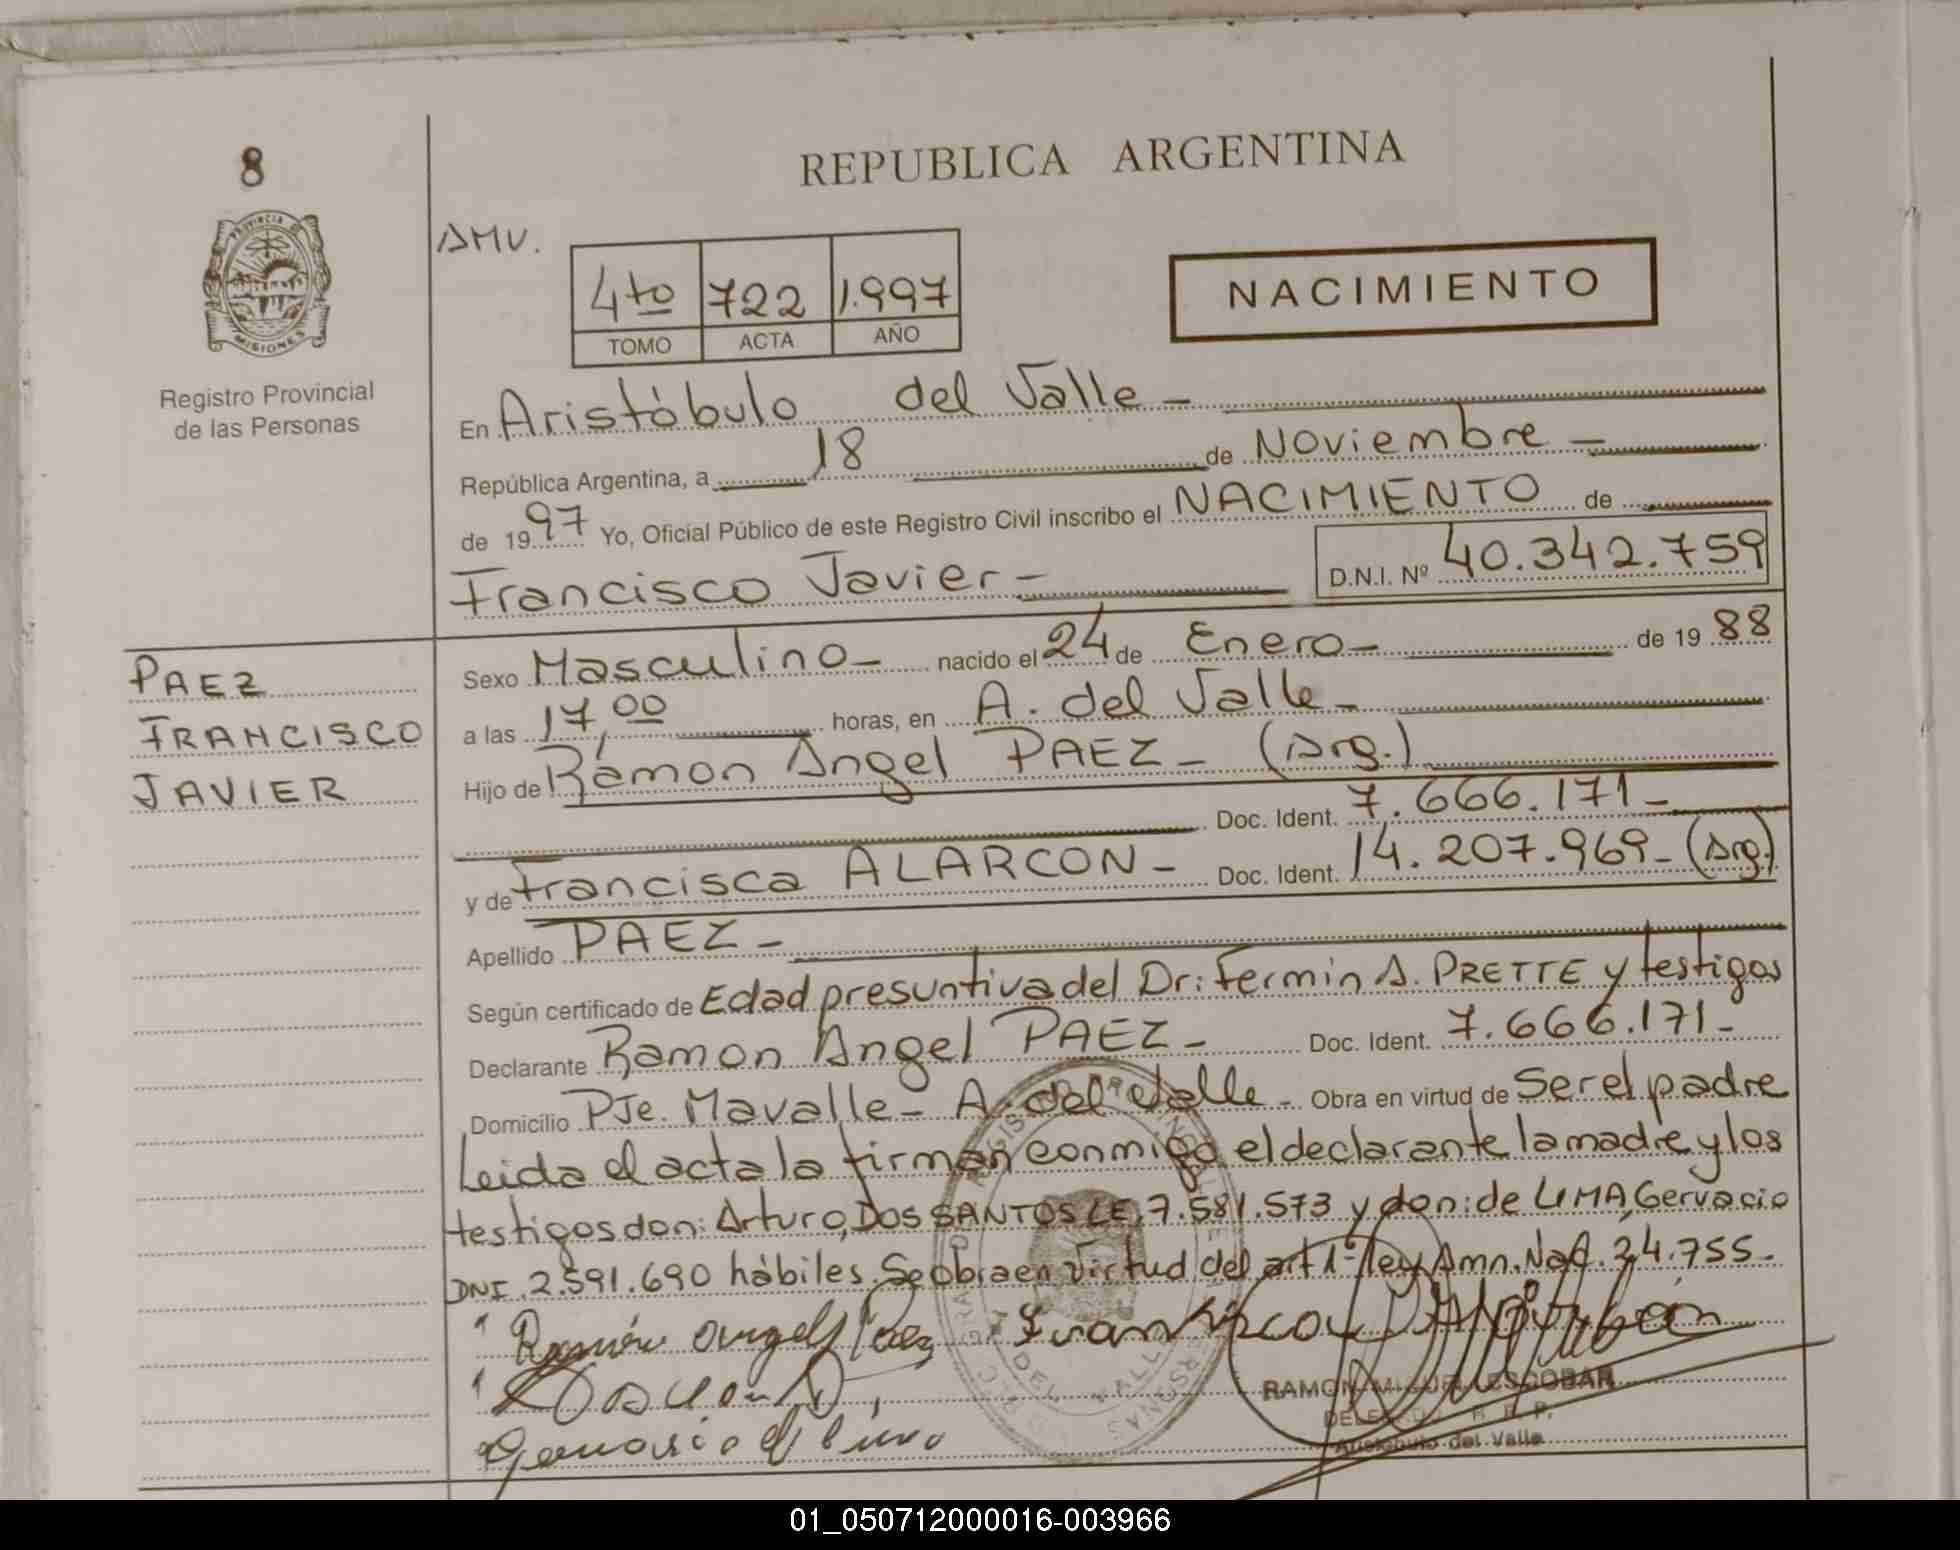 8
REPUBLICA ARGENTINA
PROVINCIA DE
MISIONES
Registro Provincial
de las Personas
AMV.
4to 722 1.997
TOMO ACTA AÑO
NACIMIENTO
En Aristóbulo del Valle -
República Argentina, a 18 de Noviembre -
de 1997 Yo, Oficial Público de este Registro Civil inscribo el NACIMIENTO de
Francisco Javier - D.N.I. Nº 40.342.759
PAEZ
FRANCISCO
JAVIER
Sexo Masculino - nacido el 24 de Enero - de 1988
a las 17,00 horas, en A. del Valle -
Hijo de Rámon Angel PAEZ - (Arg.)
Doc. Ident. 7.666.171 -
y de Francisca ALARCON - Doc. Ident. 14.207.969 - (Arg.)
Apellido PAEZ -
Según certificado de Edad presuntiva del Dr: Fermin A. PRETTE y testigos
Declarante Ramon Angel PAEZ - Doc. Ident. 7.666.171 -
Domicilio PJe. Mavalle - A. del Valle - Obra en virtud de Ser el padre
Leida el acta la firman conmigo el declarante la madre y los
testigos don: Arturo, DOS SANTOS LE. 7.581.573 y don: de LIMA, Gervacio
DNI. 2.591.690 hábiles. Se obra en virtud del art 1º ley Amn. Nac. 24.755 -
Ramón Angel Paez
RAMON MIGUEL ESCOBAR
DELEGADO R. P. P.
Aristobulo del Valle
01_050712000016-003966